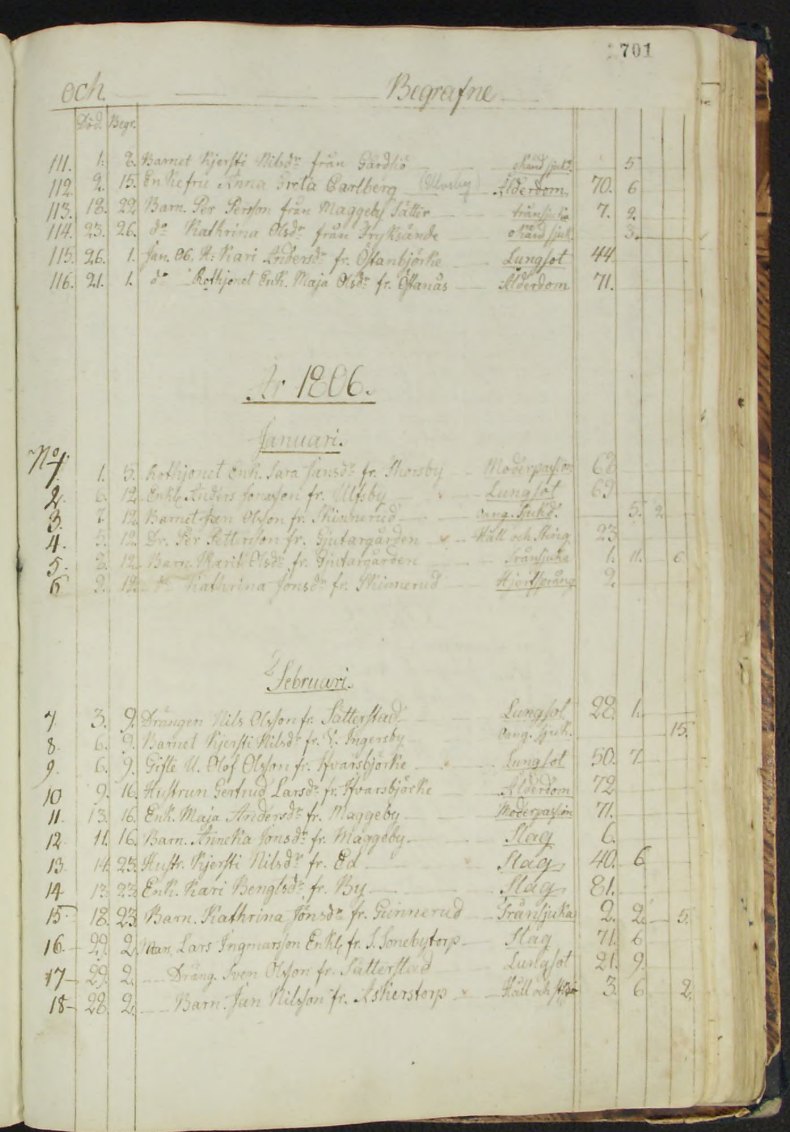 701
och Begrafne
Död. Begr.
111. 1. 8. Barnet Kjersti Nilsdr från Gårdsjö 5
112. 9. 15. Enkefru Anna Greta Carlberg Ålderdom 70. 6
113. 18. 22 Barn. Per Persson från Maggeby Sätter Trånsjuka 7. 2.
114. 23. 26. do Kathrina Olsdr från Fryksände 3.
115. 26. 1. Jan. 06. H. Kari Andersdr fr. Östanbjörke Lungsot 44
116. 21. 1. do Rothjonet Enk. Maja Olsdr fr. Östanås Ålderdom 71.
År 1806.
Januari.
No 1. 1. 5. Rothjonet Enk. Sara Jansdr fr. Thorsby Moderpassion 63
2. 6. 12. Enkl. Anders Jonasson fr. Ulfsby Lungsot 69.
3. 7. 12. Barnet Jan Olsson fr. Skinnerud 5. 2
4. 5. 12. Dr. Per Pettersson fr. Gjutargården Håll och Sting 23
5. 8. 12. Barn. Marit Olsdr fr. Gjutargården Trånsjuka 1. 11. 6
6 9. 12. do Kathrina Jonsdr fr. Skinnerud Hjertsprång 2.
Februari.
7 3. 9. Drängen Nils Olsson fr. Sätterstad Lungsot 28. 1.
8. 6. 9. Barnet Kjersti Nilsdr fr. Ingersby 15.
9. 6. 9. Gifte Olof Olsson fr. Hvarsbjörke Lungsot 50. 7.
10 9. 16. Hustrun Gertrud Larsdr fr. Hvarsbjörke Ålderdom 72
11. 13. 16. Enk. Maja Andersdr fr. Maggeby Moderpassion 71.
12. 11. 16. Barn. Annika Jonsdr fr. Maggeby Slag 6.
13. 14. 23. Hustr. Kjersti Nilsdr fr. Ed Slag 40. 6
14 13. 23. Enk. Kari Bengtsdr fr. By Slag 81.
15 18. 23. Barn. Kathrina Jonsdr fr. Gunnerud Trånsjuka 2. 2. 5.
16 22. 2. Mars. Lars Ingmarsson Enkl. fr. S. Sonebytorp Slag 71. 6
17 22. 2. Dräng. Sven Olsson fr. Sätterstad Lungsot 21. 9.
18 28. 2. Barn. Jan Nilsson fr. Askerstorp Håll och 3. 6. 2.